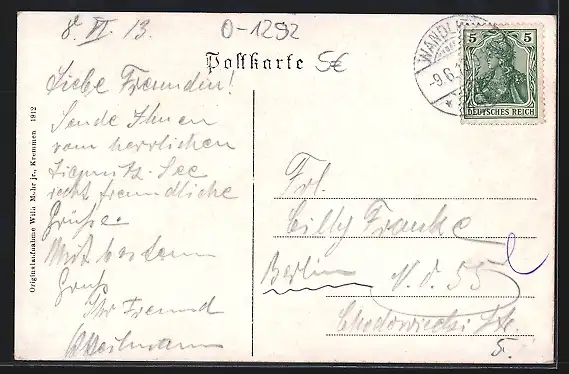 8. VI. 13.
O-1292
Postkarte
5€
WANDL
-9.6.1
5 5
DEUTSCHES REICH
Liebe Freundin!
Sende Ihnen
vom herrlichen
Liepnitz-See
recht freundliche
Grüße.
Mit bestem
Gruß
Ihr Freund
Frl.
Cilly Franke
Berlin N. O. 55
Chodowiecki Str.
5.
Originalaufnahme Willi Mohr jr., Kremmen 1912